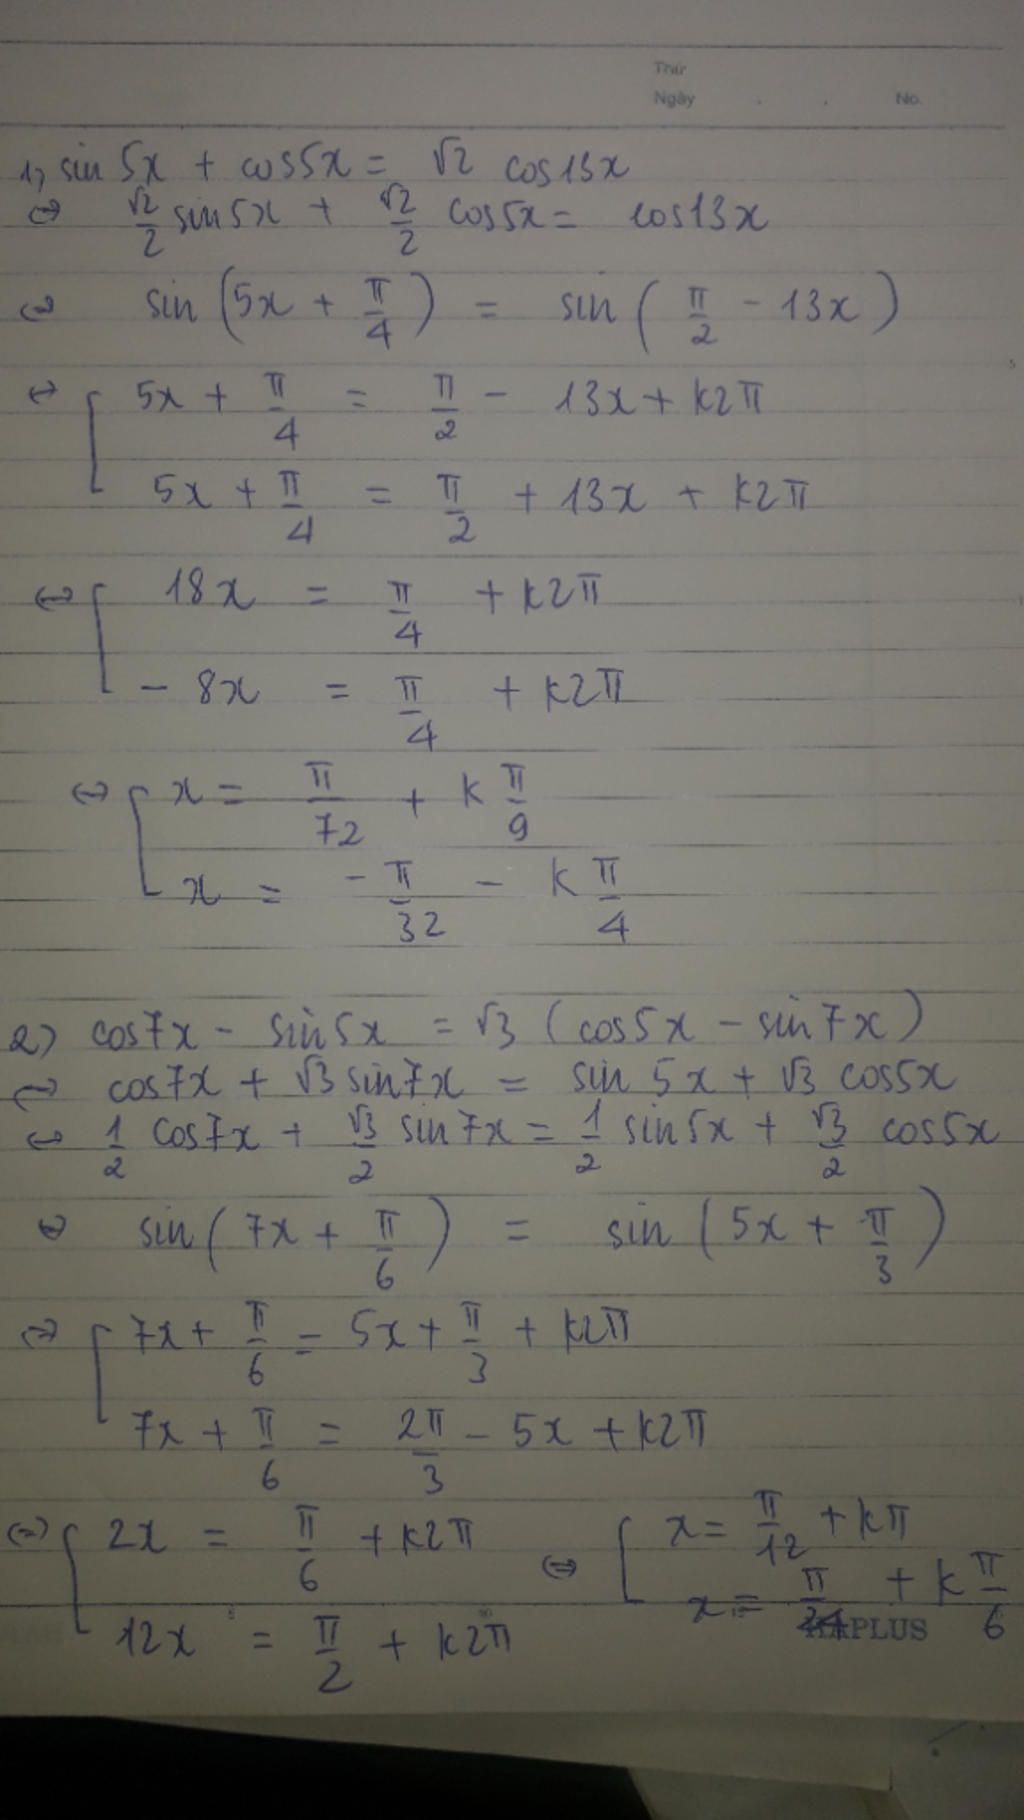 Thứ
Ngày . . No.
1, sin 5x + cos5x = √2 cos13x
⇔ √2/2 sin5x + √2/2 cos5x = cos13x
⇔ sin (5x + π/4) = sin (π/2 - 13x)
⇔ [ 5x + π/4 = π/2 - 13x + k2π
5x + π/4 = π/2 + 13x + k2π
⇔ [ 18x = π/4 + k2π
- 8x = π/4 + k2π
⇔ [ x = π/72 + k π/9
x = -π/32 - k π/4
2) cos7x - sin5x = √3 (cos5x - sin7x)
⇔ cos7x + √3 sin7x = sin 5x + √3 cos5x
⇔ 1/2 cos7x + √3/2 sin7x = 1/2 sin5x + √3/2 cos5x
⇔ sin (7x + π/6) = sin (5x + π/3)
⇔ [ 7x + π/6 = 5x + π/3 + k2π
7x + π/6 = 2π/3 - 5x + k2π
⇔ [ 2x = π/6 + k2π ⇔ [ x = π/12 + kπ
12x = π/2 + k2π x = π/24 + k π/6
PLUS